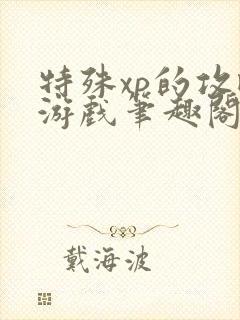 特殊xp的攻
游戏笔趣阁
戴海波